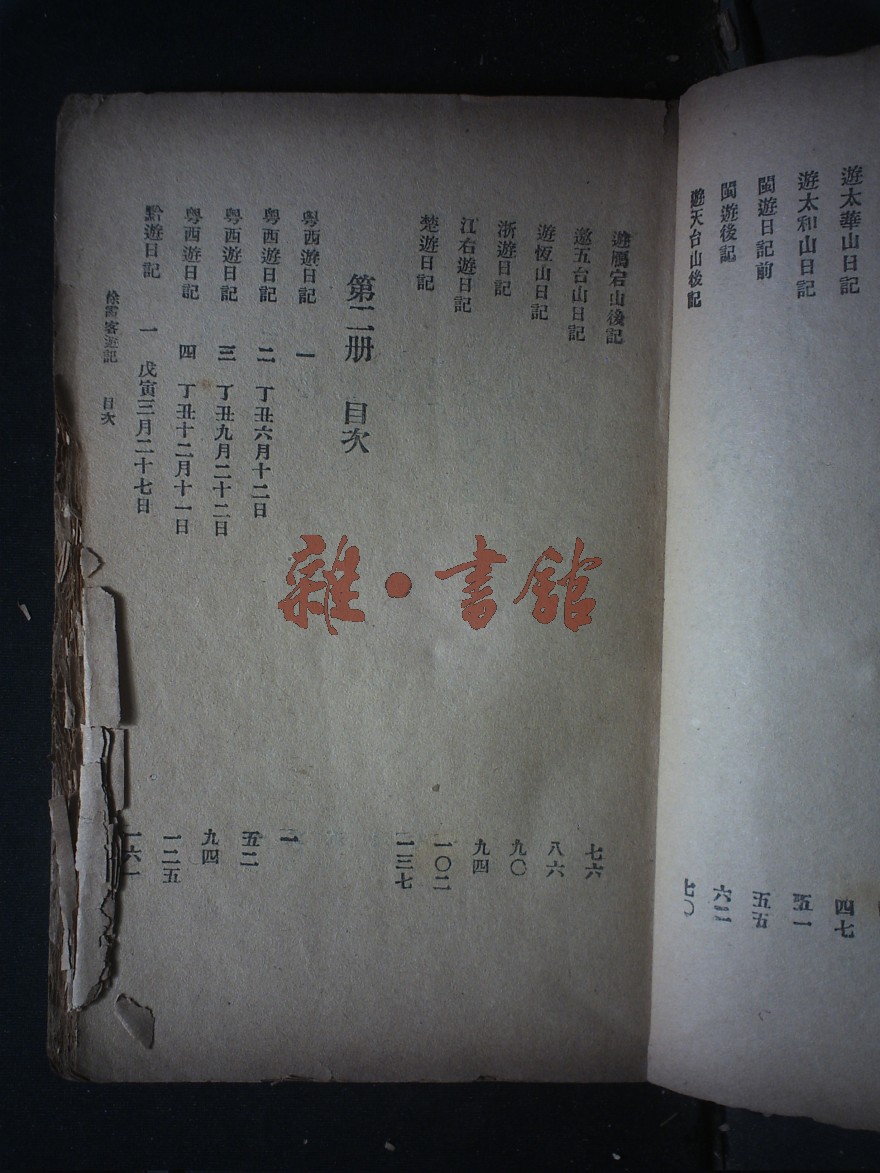 遊太華山日記 四七
遊太和山日記 五一
閩遊日記前 五五
閩遊後記 六二
遊天台山後記 七〇
遊鴈宕山後記 七六
遊五台山日記 八六
遊恆山日記 九〇
浙遊日記 九四
江右遊日記 一〇二
楚遊日記 一三七
第二册 目次
粵西遊日記 一 一
粵西遊日記 二 丁丑六月十二日 五二
粵西遊日記 三 丁丑九月二十二日 九四
粵西遊日記 四 丁丑十二月十一日 一二五
黔遊日記 一 戊寅三月二十七日 一六一
徐霞客遊記 目次
雜·書館